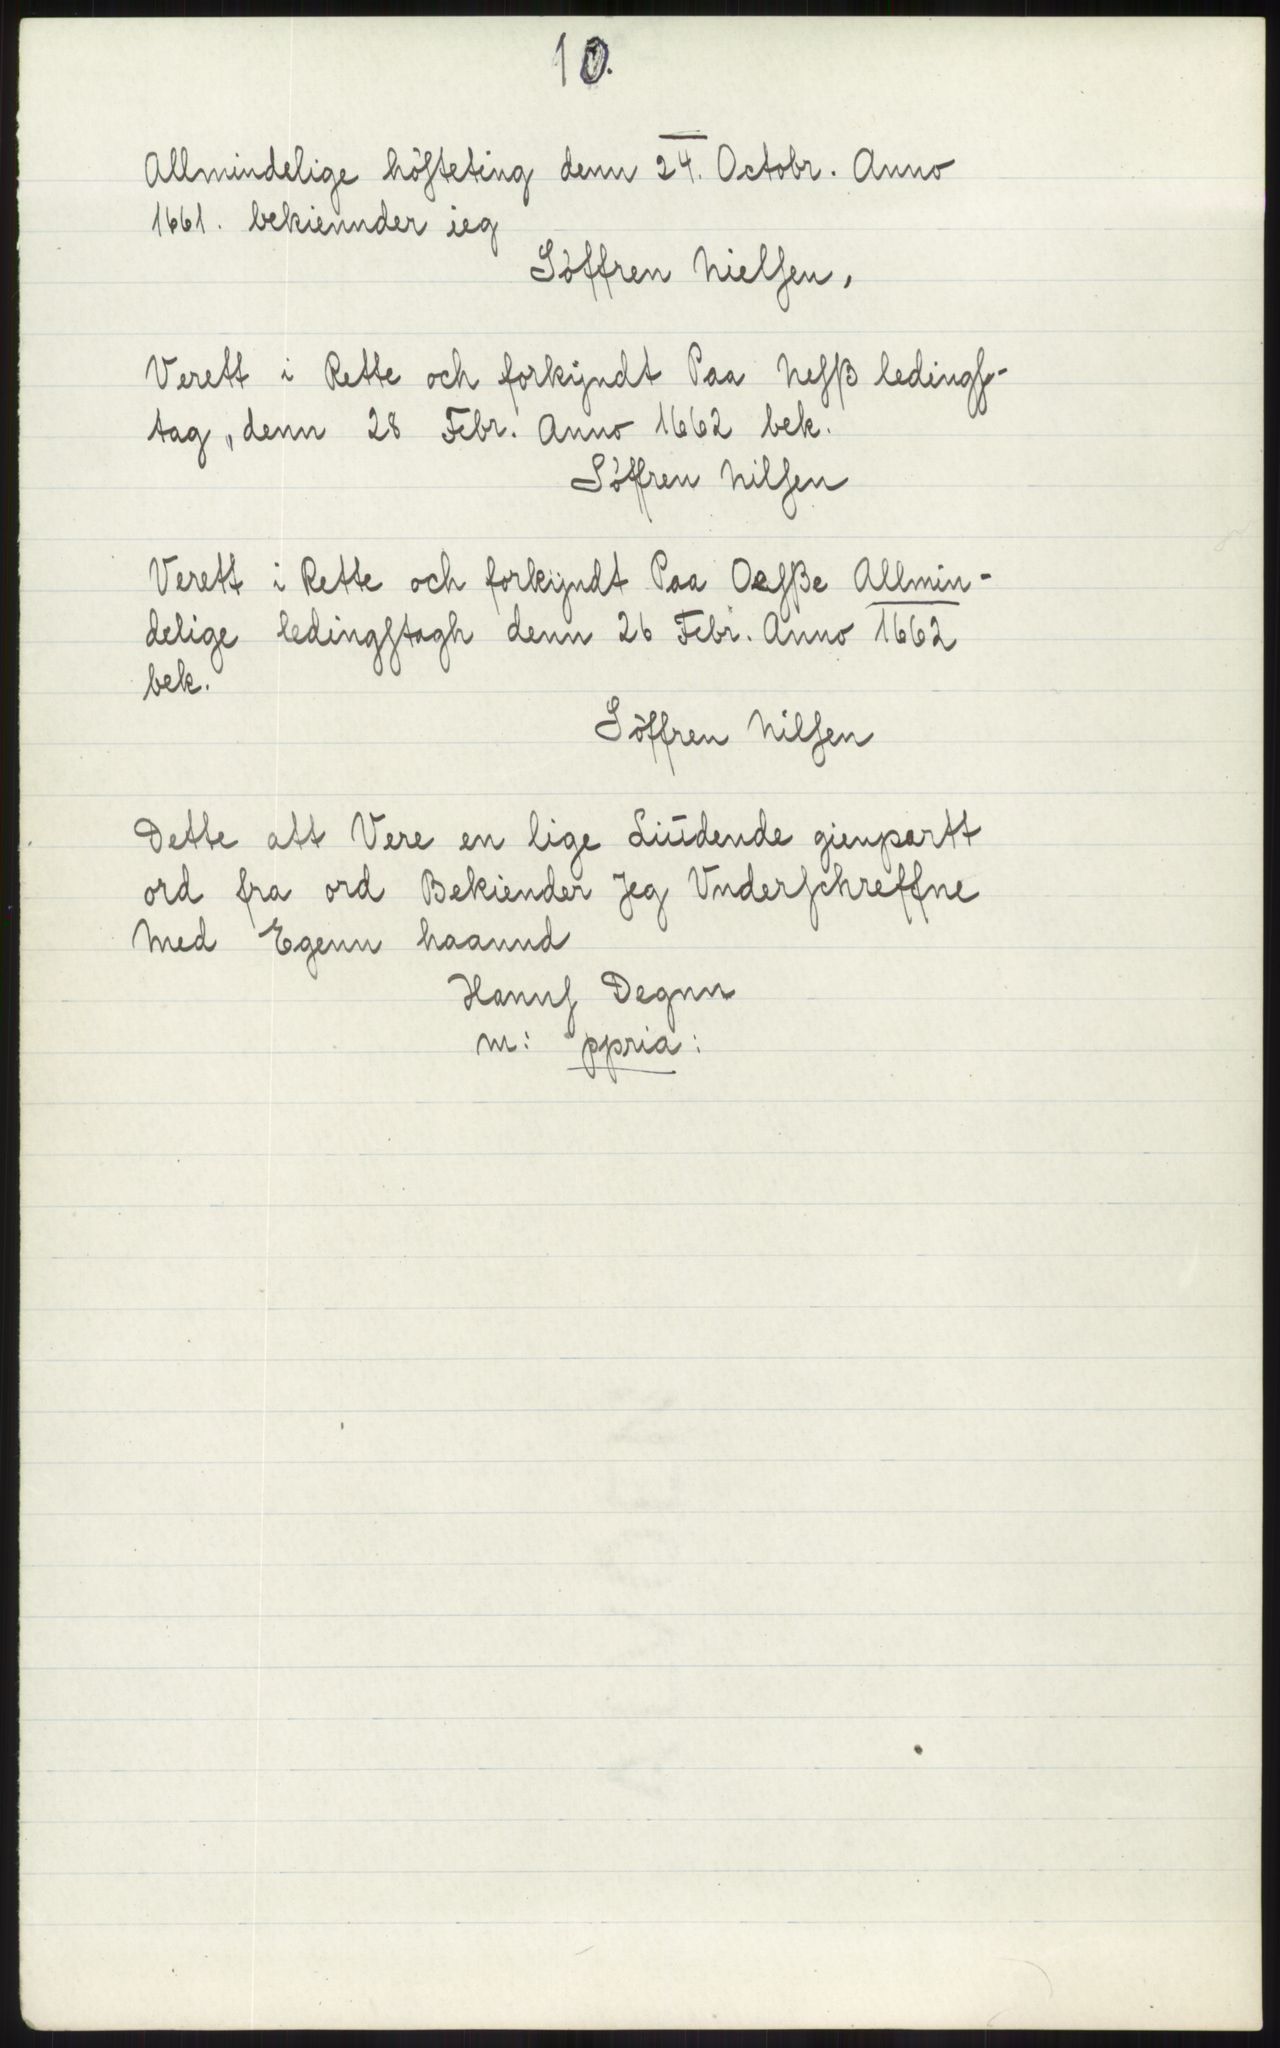 10.
Allmindelige höfsteting denn 24. Octobr. Anno
1661. bekiennder ieg
Söffren Nielsen,
Verett i Rette och forkyndt Paa Nesß ledings-
tag, denn 28 Febr. Anno 1662 bek.
Söffren Nilsen
Verett i Rette och forkyndt Paa Oesße Allmin-
delige ledingstagh denn 26 Febr. Anno 1662
bek.
Söffren Nilsen
Dette att Vere en lige Liudende gienpartt
ord fra ord Bekiender Jeg Underschreffne
Med Egenn haannd
Hanns Degnn
m: ppria: